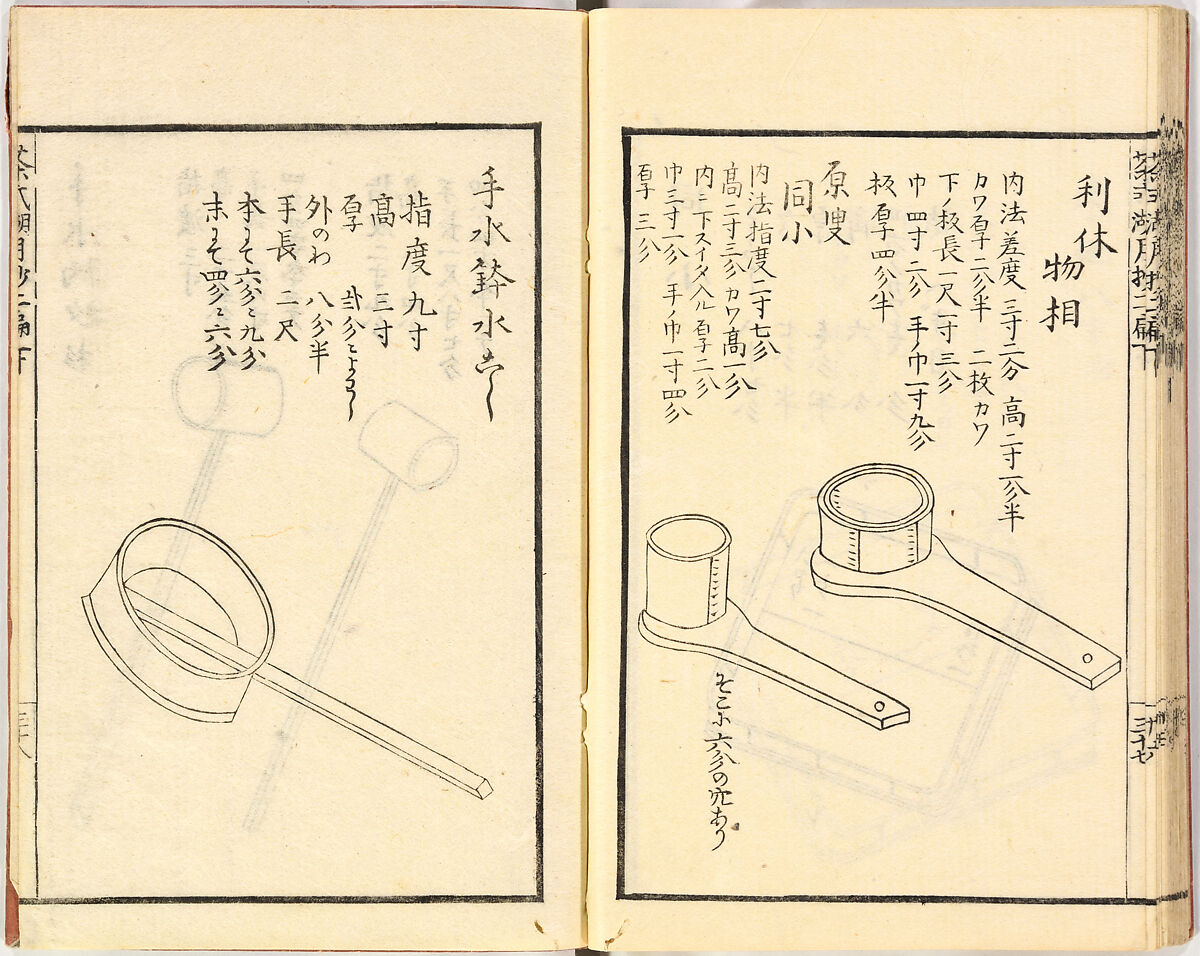 利休
物相
内法差度三寸二分 高二寸一分半
カワ厚二分半 二枚カワ
下ノ板長一尺一寸三分
巾四寸二分 手ノ巾一寸九分
板厚四分半
原叟
同小
内法指度二寸七分
高二寸三分カワ高一分
内ニ下スイタ入ル厚二分
巾三寸一分手ノ巾一寸四分
厚三分
そこに六分の穴あり
三十七
手水鉢水こし
指度九寸
高三寸
厚
外のわ 八分半
手長二尺
本にて六分ニ九分
末にて四分ニ六分